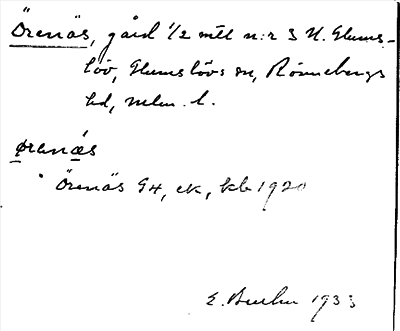 Örenäs, gård 1/2 mil n:r S N. Glums-
löv, Glumslövs sn, Rönnebergs
hd, Malm. l.
ørenǽs
Örenäs Gd, ek, kb 1920
E. 1933